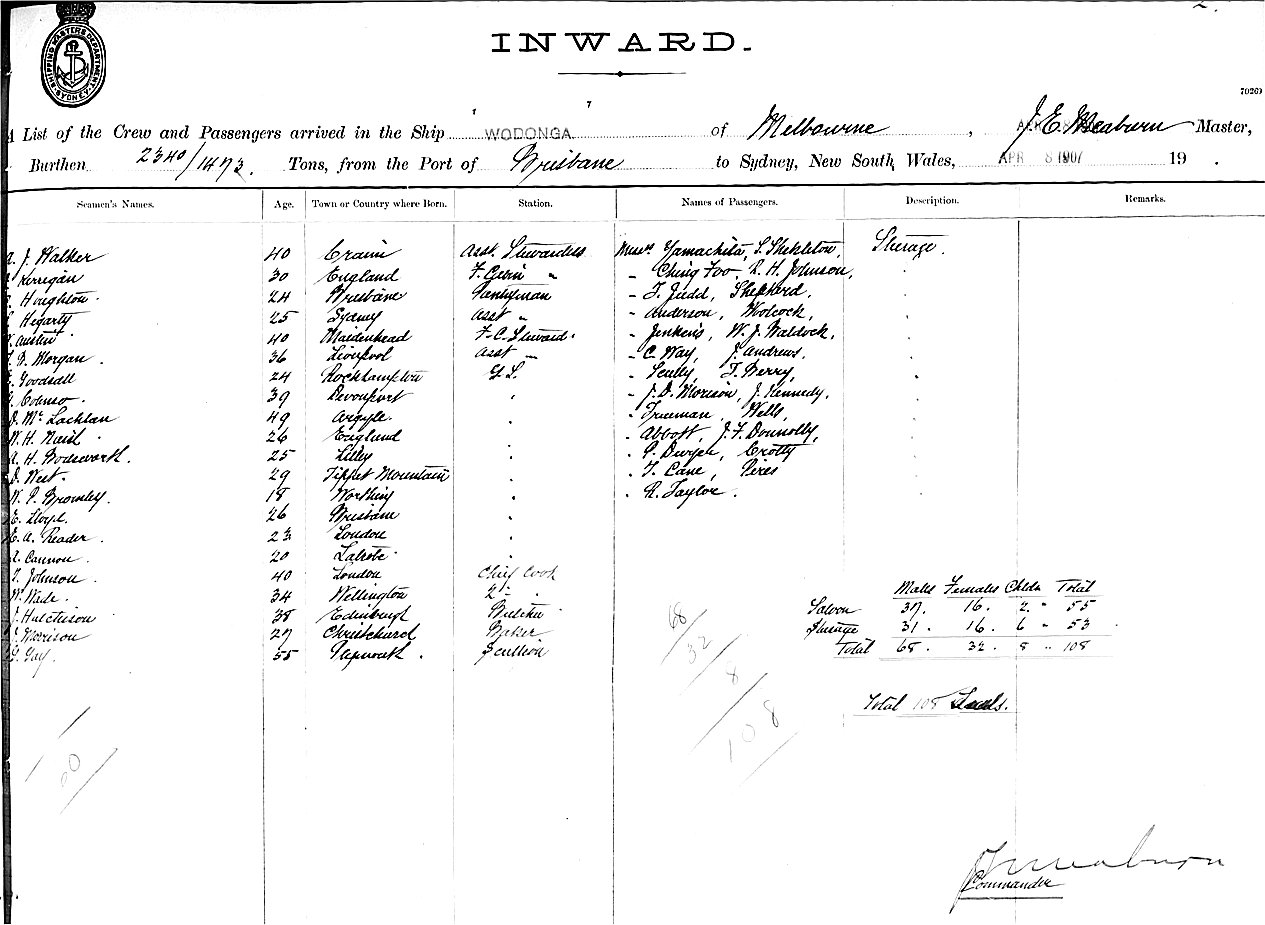 2.
SHIPPING MASTERS DEPARTMENT SYDNEY
INWARD.
70269
A List of the Crew and Passengers arrived in the Ship WODONGA of Melbourne, J. E. Meaburn Master,
Burthen 2340/1473. Tons, from the Port of Brisbane to Sydney, New South Wales, APR 8 1907 19 .
Seamen's Names. Age. Town or Country where Born. Station. Names of Passengers. Description. Remarks.
J Walker 40 Asst. Stewardess Messrs Yamachita, S. Shekleton, Steerage.
Kerrigan 30 England " - Ching Foo, R. H. Johnson,
Houghton. 24 Brisbane Pantryman - T. Judd, Shepherd,
Hegarty 25 Sydney Asst " - Anderson, Wolcock,
Austin 40 Maidenhead F. C. Steward. - Jenkens, W. J. Waldock,
Morgan. 36 Liverpool Asst " - C. Way, J. Andrews,
Goodsall 24 Rockhampton G. S. - Scully, T. Berry,
39 Devonport - J. D. Morison, J. Kennedy,
D. Mc Lachlan 49 Argyle. - Freeman, Wells,
W. H. 26 England - Abbott, J. F. Donnolly,
A. H. Bodsworth. 25 Lilley - P. Dwyer, Crotty
D. West. 29 Tippet Mountain - T. Cane, Pires
W. P. Bromley. 18 Worthing - R. Taylor.
E. Lloyd. 26 Brisbane
E. A. Reader. 23 London
Cannon. 20 Latrobe.
T. Johnson. 40 London Chief Cook
W. Wade. 34 Wellington 2 "
J Hutchison 38 Edinburgh Butcher
Morrison 27 Christchurch Baker
55 Scullion
Males Females Chldn Total
Saloon 37. 16. 2. " 55
Steerage 31. 16. 6 " 53.
Total 68. 32. 8 " 108
68
32
8
108
Total 108 Souls.
J E Meaburn
Commander